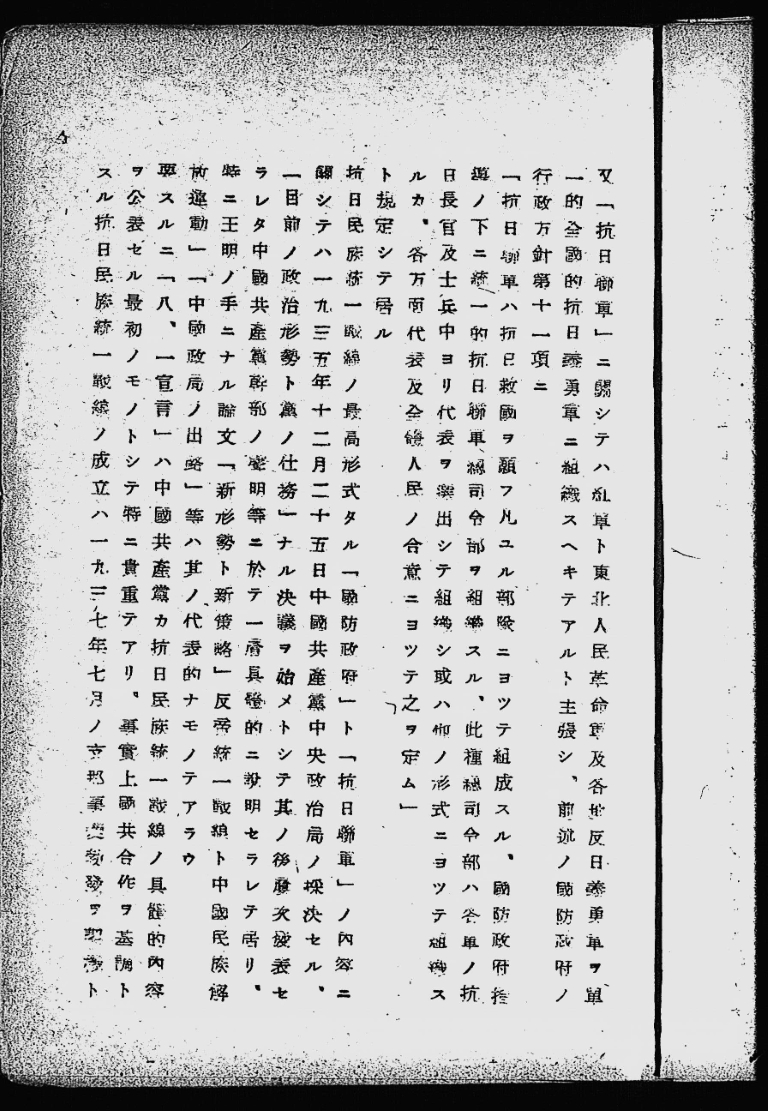 又「抗日聯軍」ニ關シテハ紅軍ト東北人民革命軍及各地反日義勇軍ヲ單
一的全國的抗日義勇軍ニ組織スヘキテアルト主張シ、前述ノ國防政府ノ
行政方針第十一項ニ
「抗日聯軍ハ抗日救國ヲ願フ凡ユル部隊ニヨツテ組成スル、國防政府指
導ノ下ニ統一的抗日聯軍總司令部ヲ組織スル、此種總司令部ハ各軍ノ抗
日長官及士兵中ヨリ代表ヲ選出シテ組織シ或ハ他ノ形式ニヨツテ組織ス
ルカ、各方面代表及全體人民ノ合意ニヨツテ之ヲ定ム」
ト規定シテ居ル
抗日民族統一戰線ノ最高形式タル「國防政府」ト「抗日聯軍」ノ內容ニ
關シテハ一九三五年十二月二十五日中國共產黨中央政治局ノ採決セル、
「目前ノ政治形勢ト黨ノ任務」ナル決議ヲ始メトシテ其ノ後屢次發表セ
ラレタ中國共產黨幹部ノ聲明等ニ於テ一層具體的ニ說明セラレテ居リ、
特ニ王明ノ手ニナル論文「新形勢ト新策略」反帝統一戰線ト中國民族解
放運動」「中國政局ノ出路」等ハ其ノ代表的ナモノテアラウ
要スルニ「八、一宣言」ハ中國共產黨カ抗日民族統一戰線ノ具體的內容
ヲ公表セル最初ノモノトシテ特ニ貴重テアリ、事實上國共合作ヲ基調ト
スル抗日民族統一戰線ノ成立ハ一九三七年七月ノ支那事變勃發ヲ契機ト